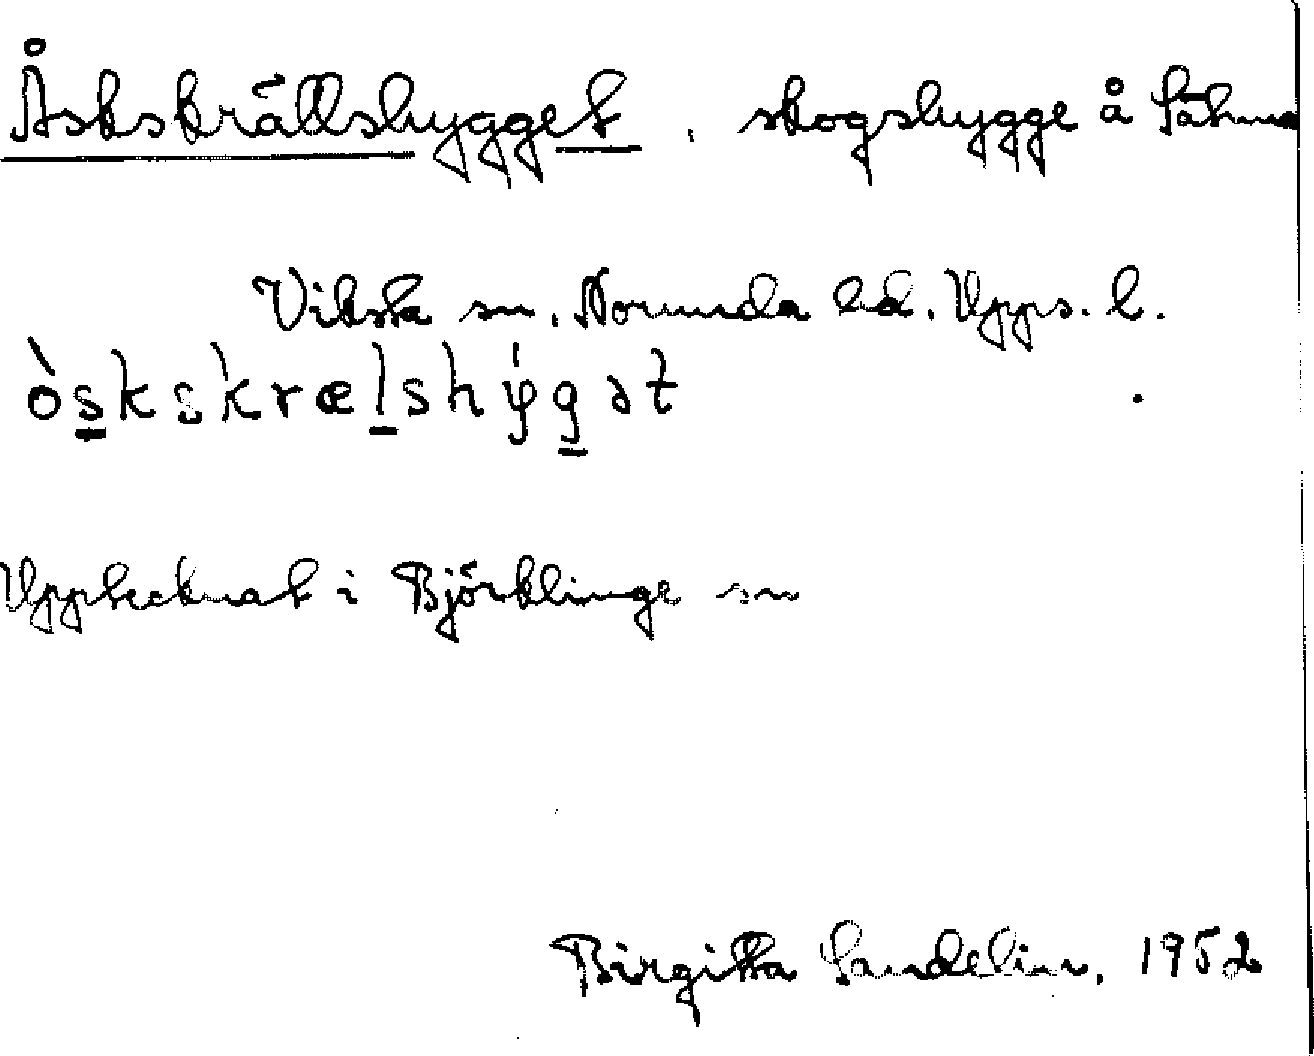 Åskskrällshygget, skogshygge å Sätuna
Viksta sn. Norunda hd. Upps. l.
òskskrælshýgət
Upptecknat i Björklinge sn
Birgitta Sandelin, 1952